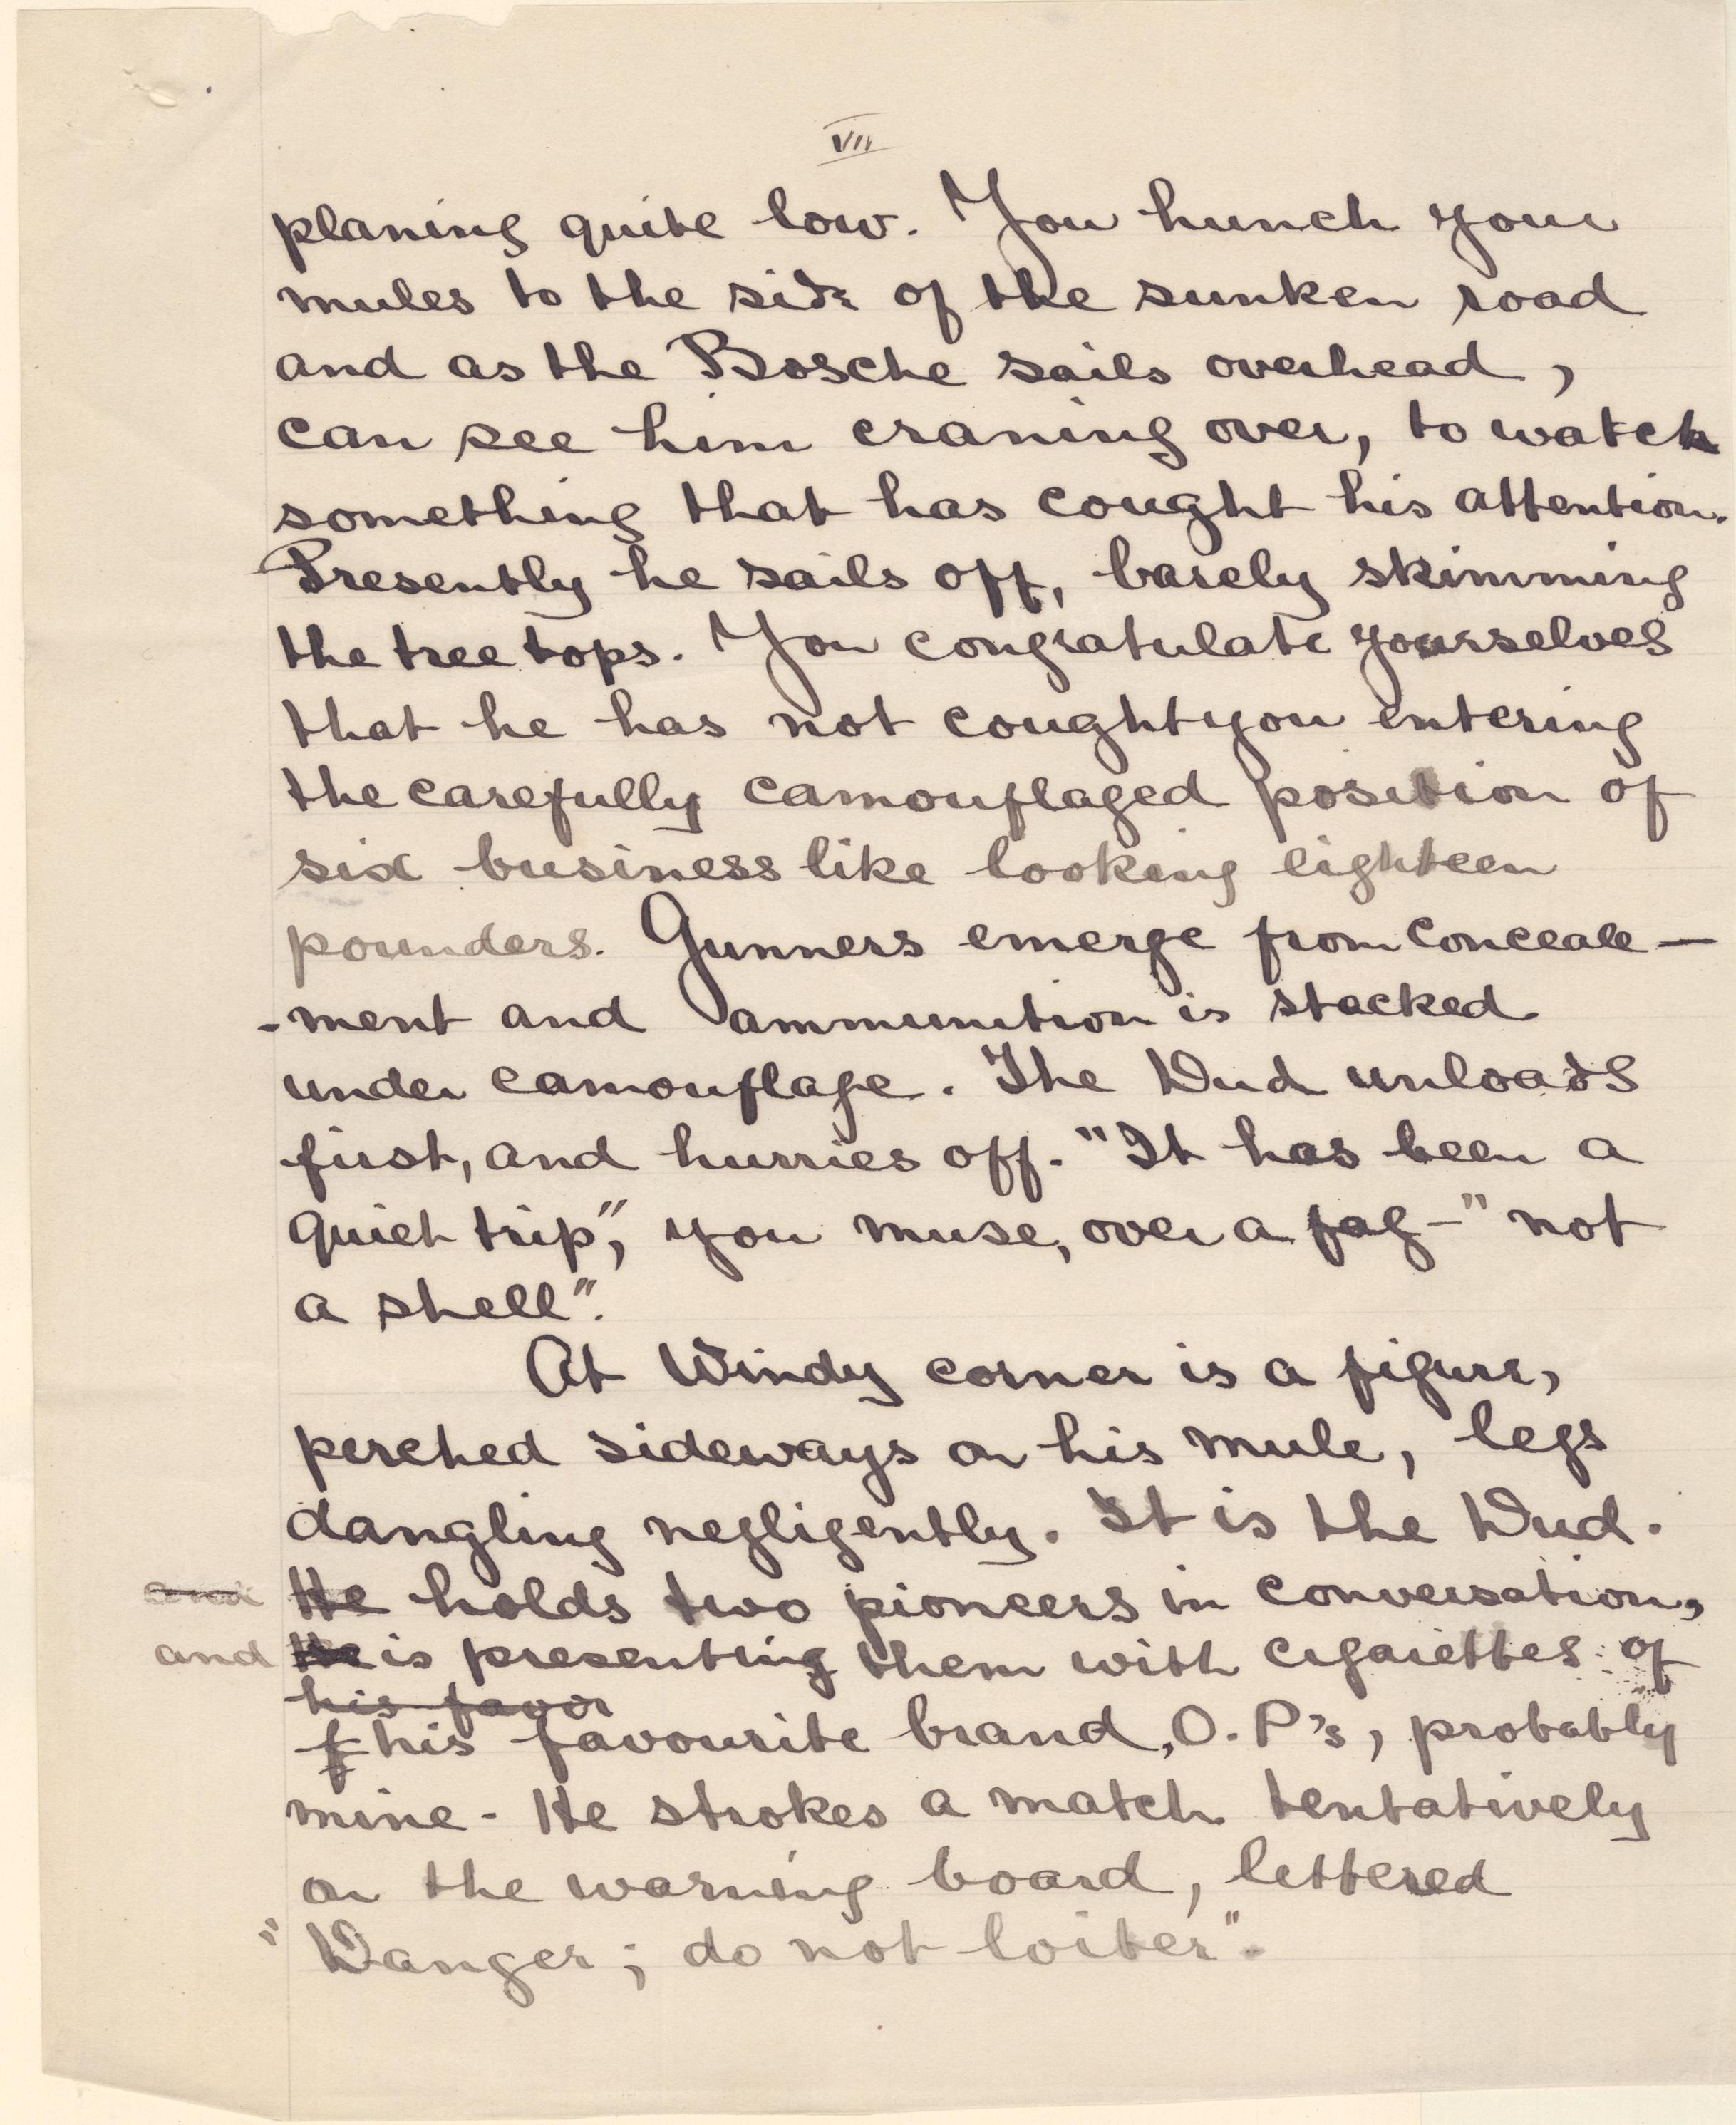 VII
planing quite low. You hunch your
mules to the side of the sunken road
and as the Bosche sails overhead,
can see him craning over, to watch
something that has cought his attention.
Presently he sails off, barely skimming
the tree tops. You congratulate yourselves
that he has not cought you entering
the carefully camouflaged position of
six business like looking eighteen
pounders. Gunners emerge from conceale-
-ment and ammunition is stacked
under camouflage. The Dud unloads
first, and hurries off. "It has been a
quiet trip", you muse, over a fag - "not
a shell".
At Windy corner is a figure,
perched sideways on his mule, legs
dangling negligently. It is the Dud.
and He holds two pioneers in conversation,
and He is presenting them with cigarettes of
his favor
f his favourite brand, O.P's, probably
mine - He strokes a match tentatively
on the warning board, lettered
"Danger; do not loiter".